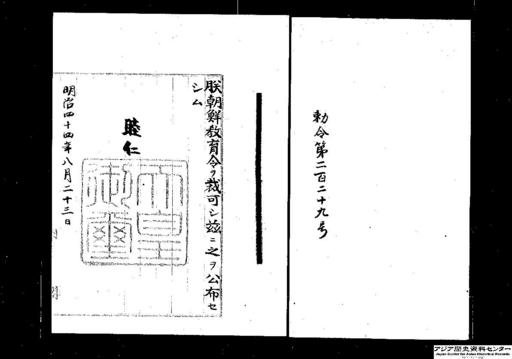 勅令第二百二十九号
朕朝鮮教育令ヲ裁可シ茲ニ之ヲ公布セ
シム
睦仁
天皇御璽
明治四十四年八月二十三日
アジア歴史資料センター
Japan Center for Asian Historical Records